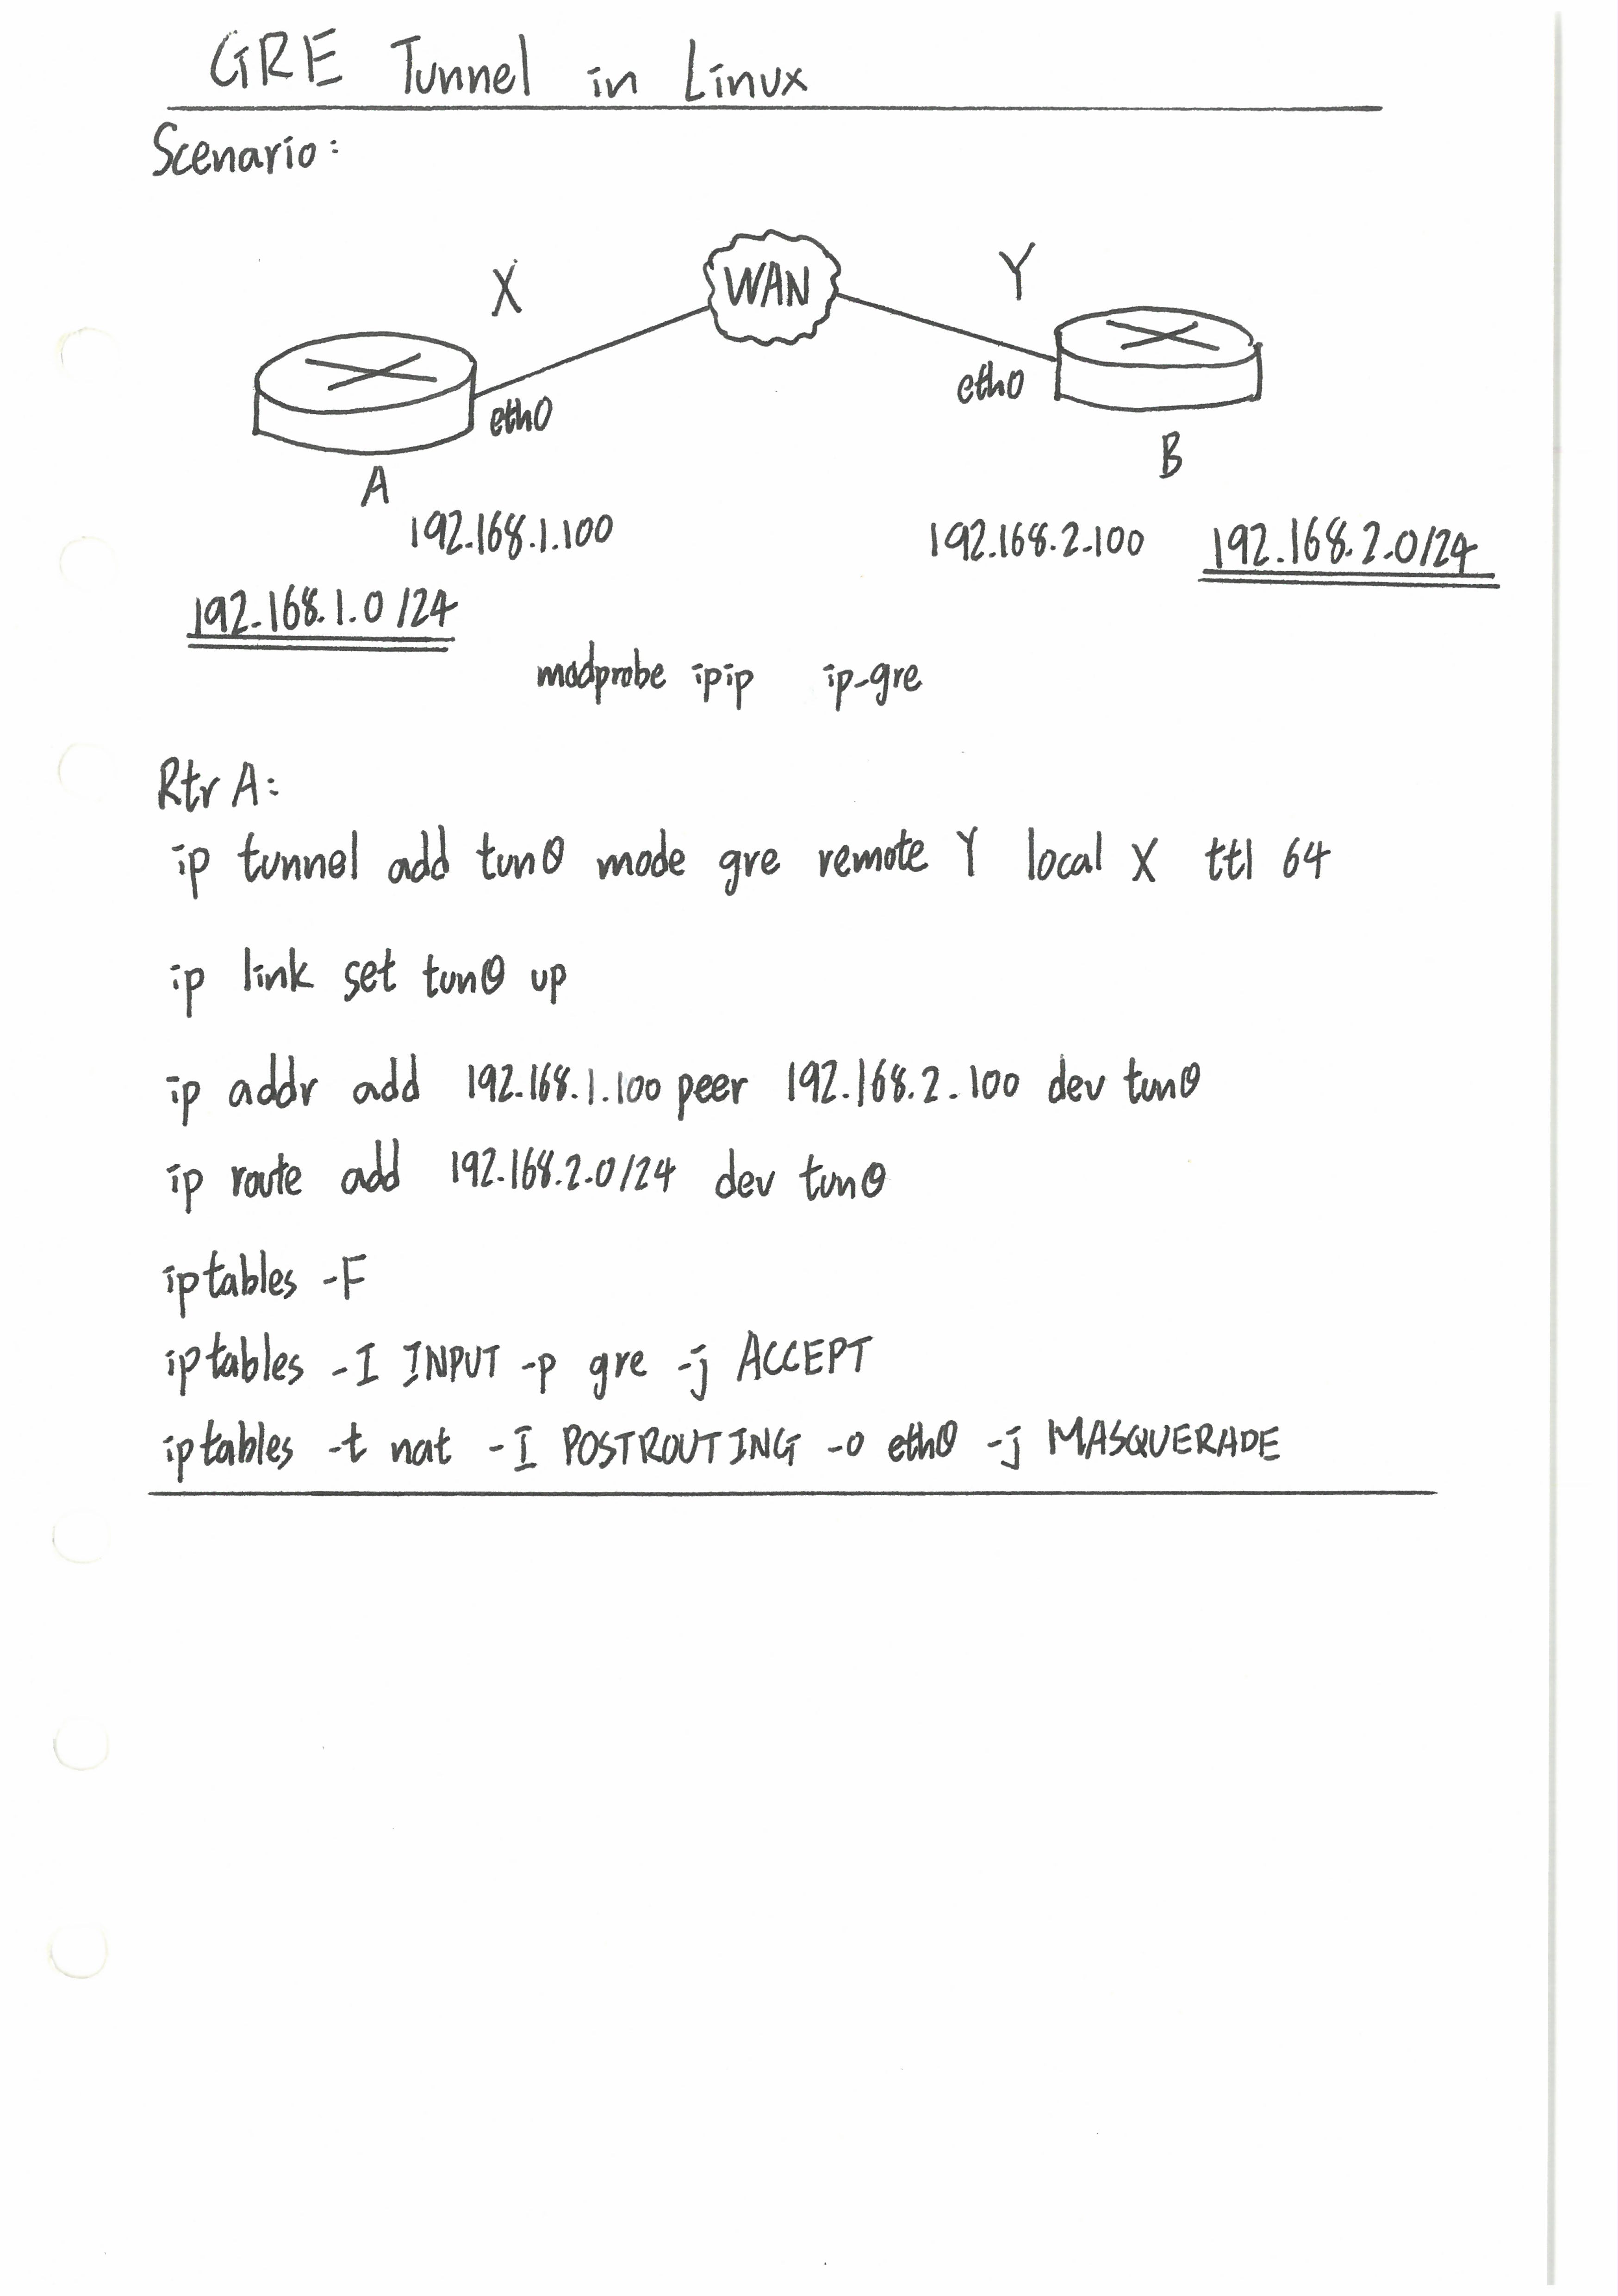 GRE Tunnel in Linux
Scenario:
X
WAN
Y
eth0
eth0
A
B
192.168.1.100
192.168.2.100
192.168.2.0/24
192.168.1.0/24
modprobe ipip ip-gre
Rtr A:
ip tunnel add tun0 mode gre remote Y local X ttl 64
ip link set tun0 up
ip addr add 192.168.1.100 peer 192.168.2.100 dev tun0
ip route add 192.168.2.0/24 dev tun0
iptables -F
iptables -I INPUT -p gre -j ACCEPT
iptables -t nat -I POSTROUTING -o eth0 -j MASQUERADE